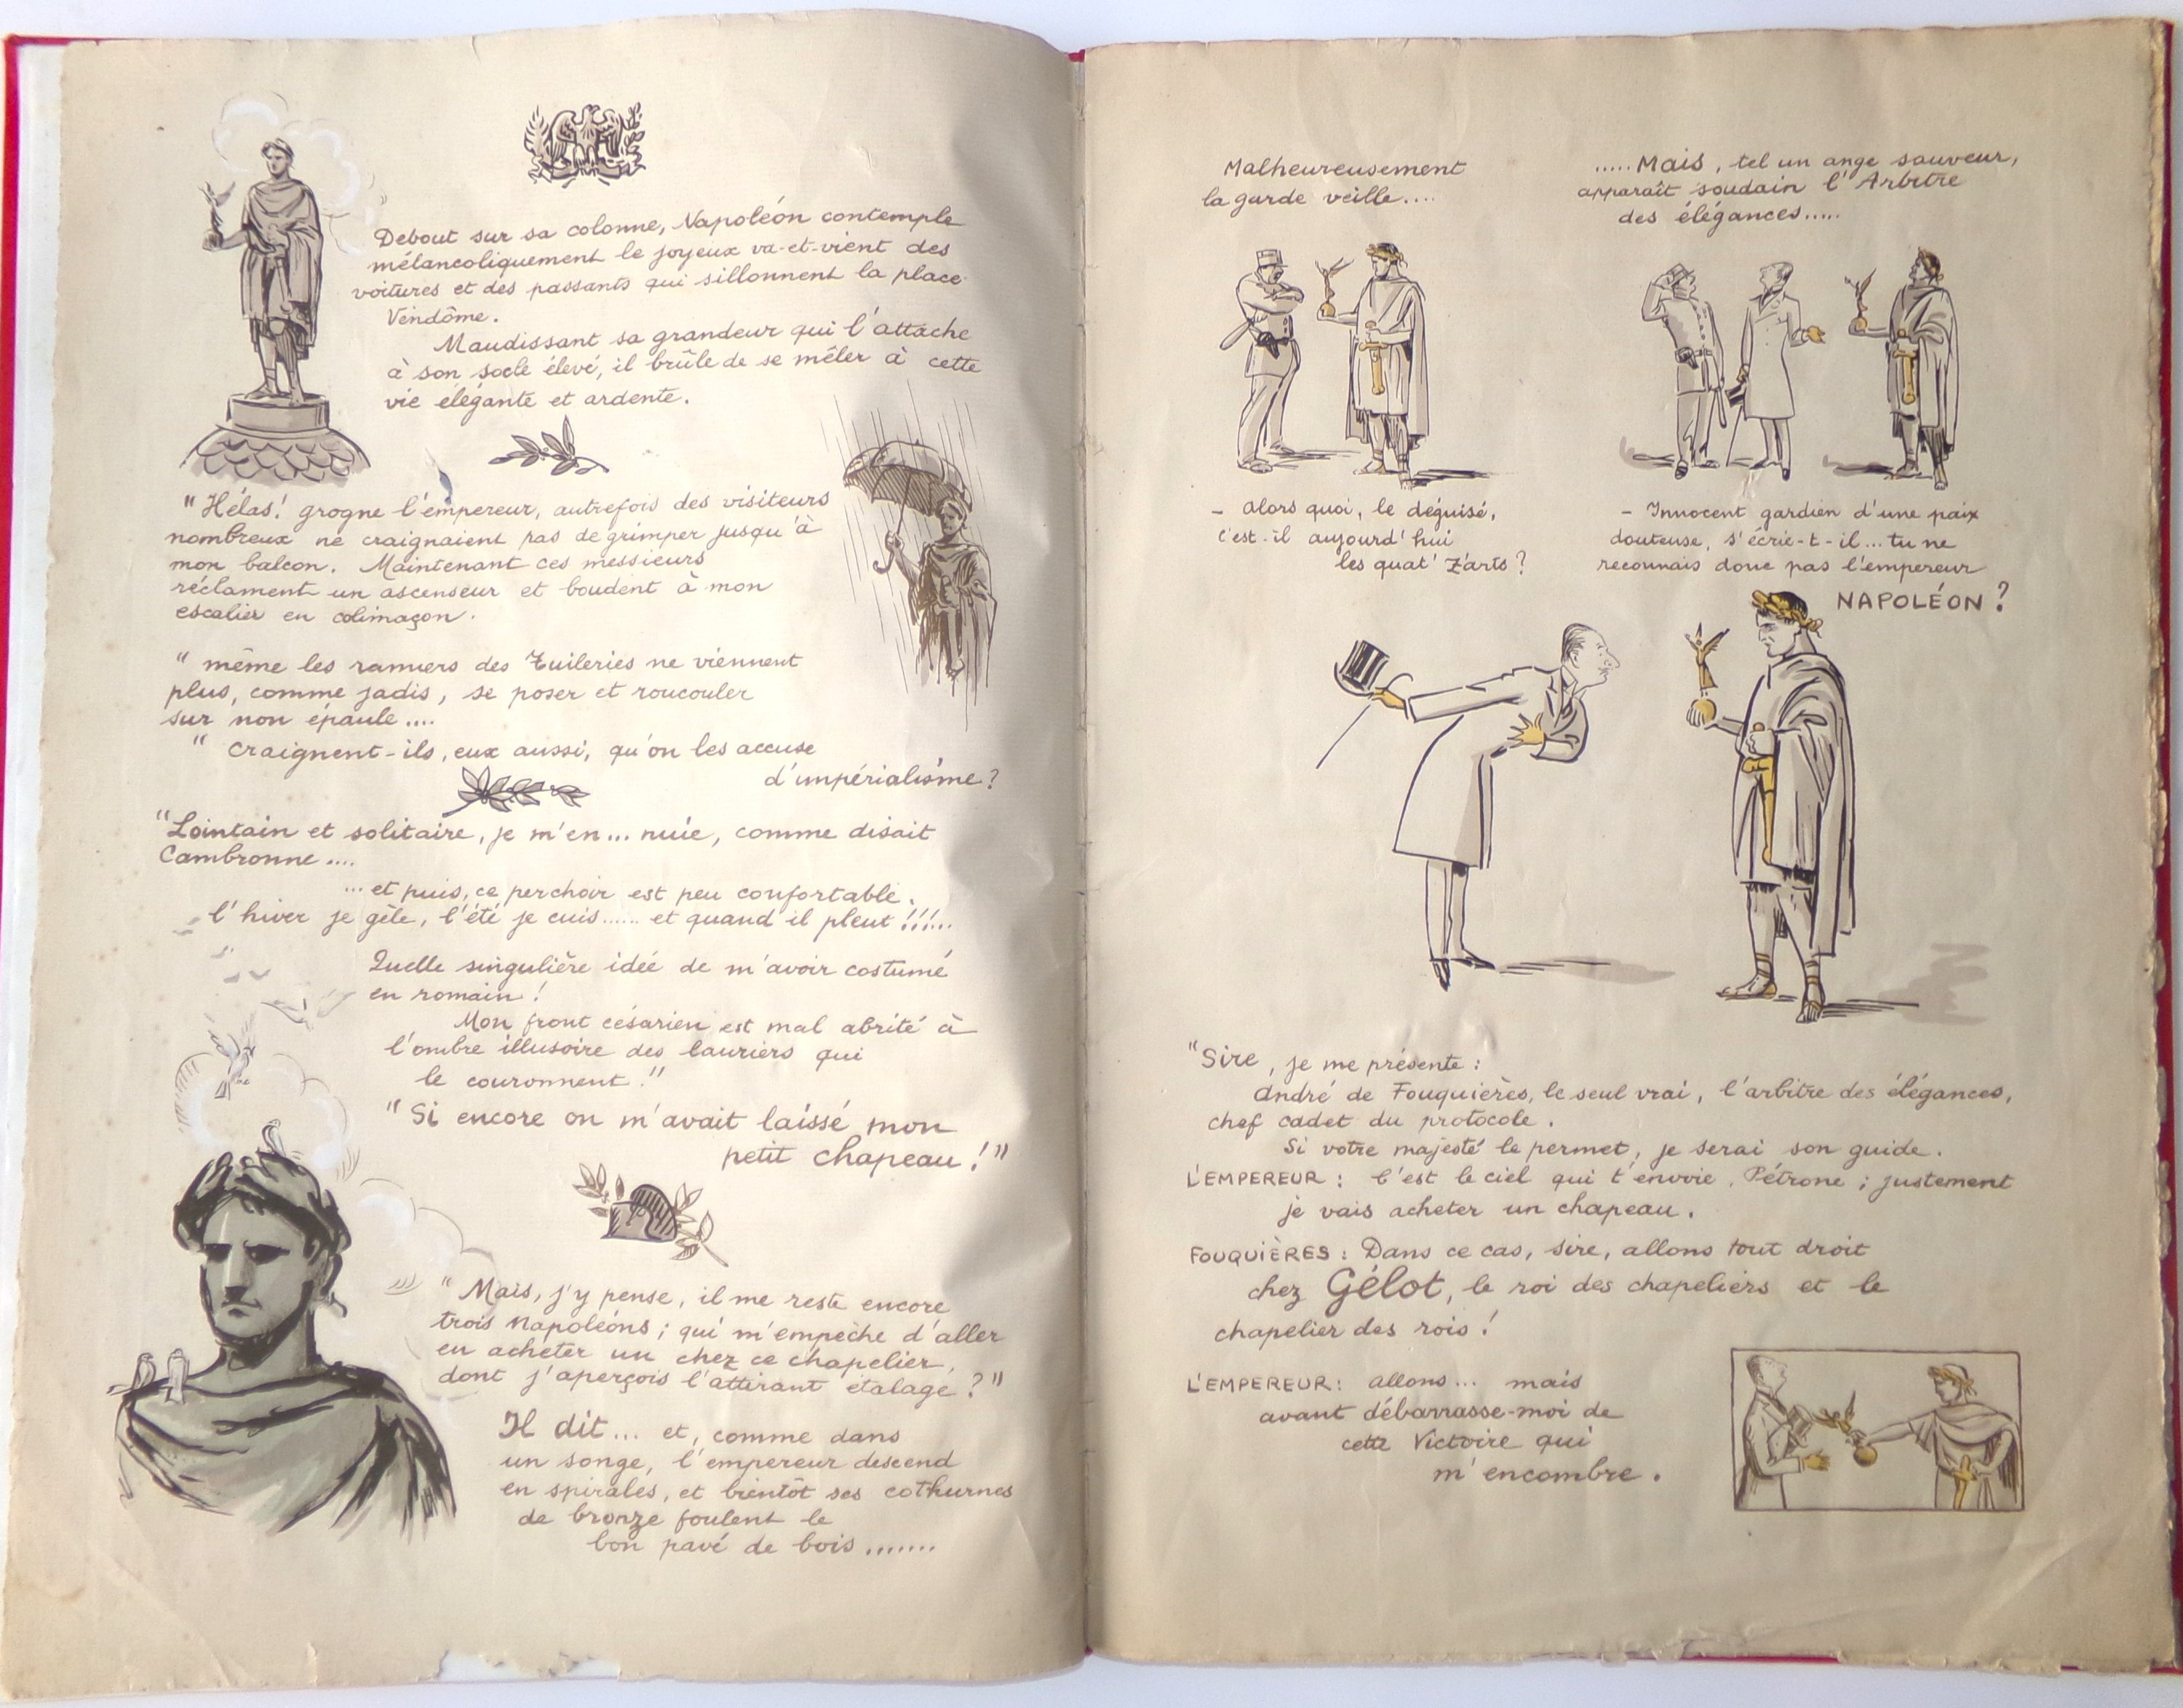 Debout sur sa colonne, Napoléon contemple
mélancoliquement le joyeux va-et-vient des
voitures et des passants qui sillonnent la place
Vendôme.
Maudissant sa grandeur qui l'attache
à son socle élevé, il brûle de se mêler à cette
vie élégante et ardente.
"Hélas! grogne l'empereur, autrefois des visiteurs
nombreux ne craignaient pas de grimper jusqu'à
mon balcon. Maintenant ces messieurs
réclament un ascenseur et boudent à mon
escalier en colimaçon.
" même les ramiers des Tuileries ne viennent
plus, comme jadis, se poser et roucouler
sur mon épaule....
" Craignent-ils, eux aussi, qu'on les accuse
d'impérialisme?
"Lointain et solitaire, je m'en... nuie, comme disait
Cambronne....
...et puis, ce perchoir est peu confortable.
l'hiver je gèle, l'été je cuis...... et quand il pleut!!!...
Quelle singulière idée de m'avoir costumé
en romain!
Mon front césarien est mal abrité à
l'ombre illusoire des lauriers qui
le couronnent."
"Si encore on m'avait laissé mon
petit chapeau!"
"Mais, j'y pense, il me reste encore
trois Napoléons; qui m'empêche d'aller
en acheter un chez ce chapelier,
dont j'aperçois l'attirant étalage?"
Il dit... et, comme dans
un songe, l'empereur descend
en spirales, et bientôt ses cothurnes
de bronze foulent le
bon pavé de bois.......
Malheureusement
la garde veille....
- Alors quoi, le déguisé,
c'est-il aujourd'hui
les quat' Z'arts?
.....Mais, tel un ange sauveur,
apparaît soudain l'Arbitre
des élégances.....
- Innocent gardien d'une paix
douteuse, s'écrie-t-il... tu ne
reconnais donc pas l'empereur
NAPOLÉON?
"Sire, je me présente:
André de Fouquières, le seul vrai, l'arbitre des élégances,
chef cadet du protocole.
Si votre majesté le permet, je serai son guide.
L'EMPEREUR: C'est le ciel qui t'envoie, Pétrone; justement
je vais acheter un chapeau.
FOUQUIÈRES: Dans ce cas, sire, allons tout droit
chez Gélot, le roi des chapeliers et le
chapelier des rois!
L'EMPEREUR: allons... mais
avant débarrasse-moi de
cette Victoire qui
m'encombre.